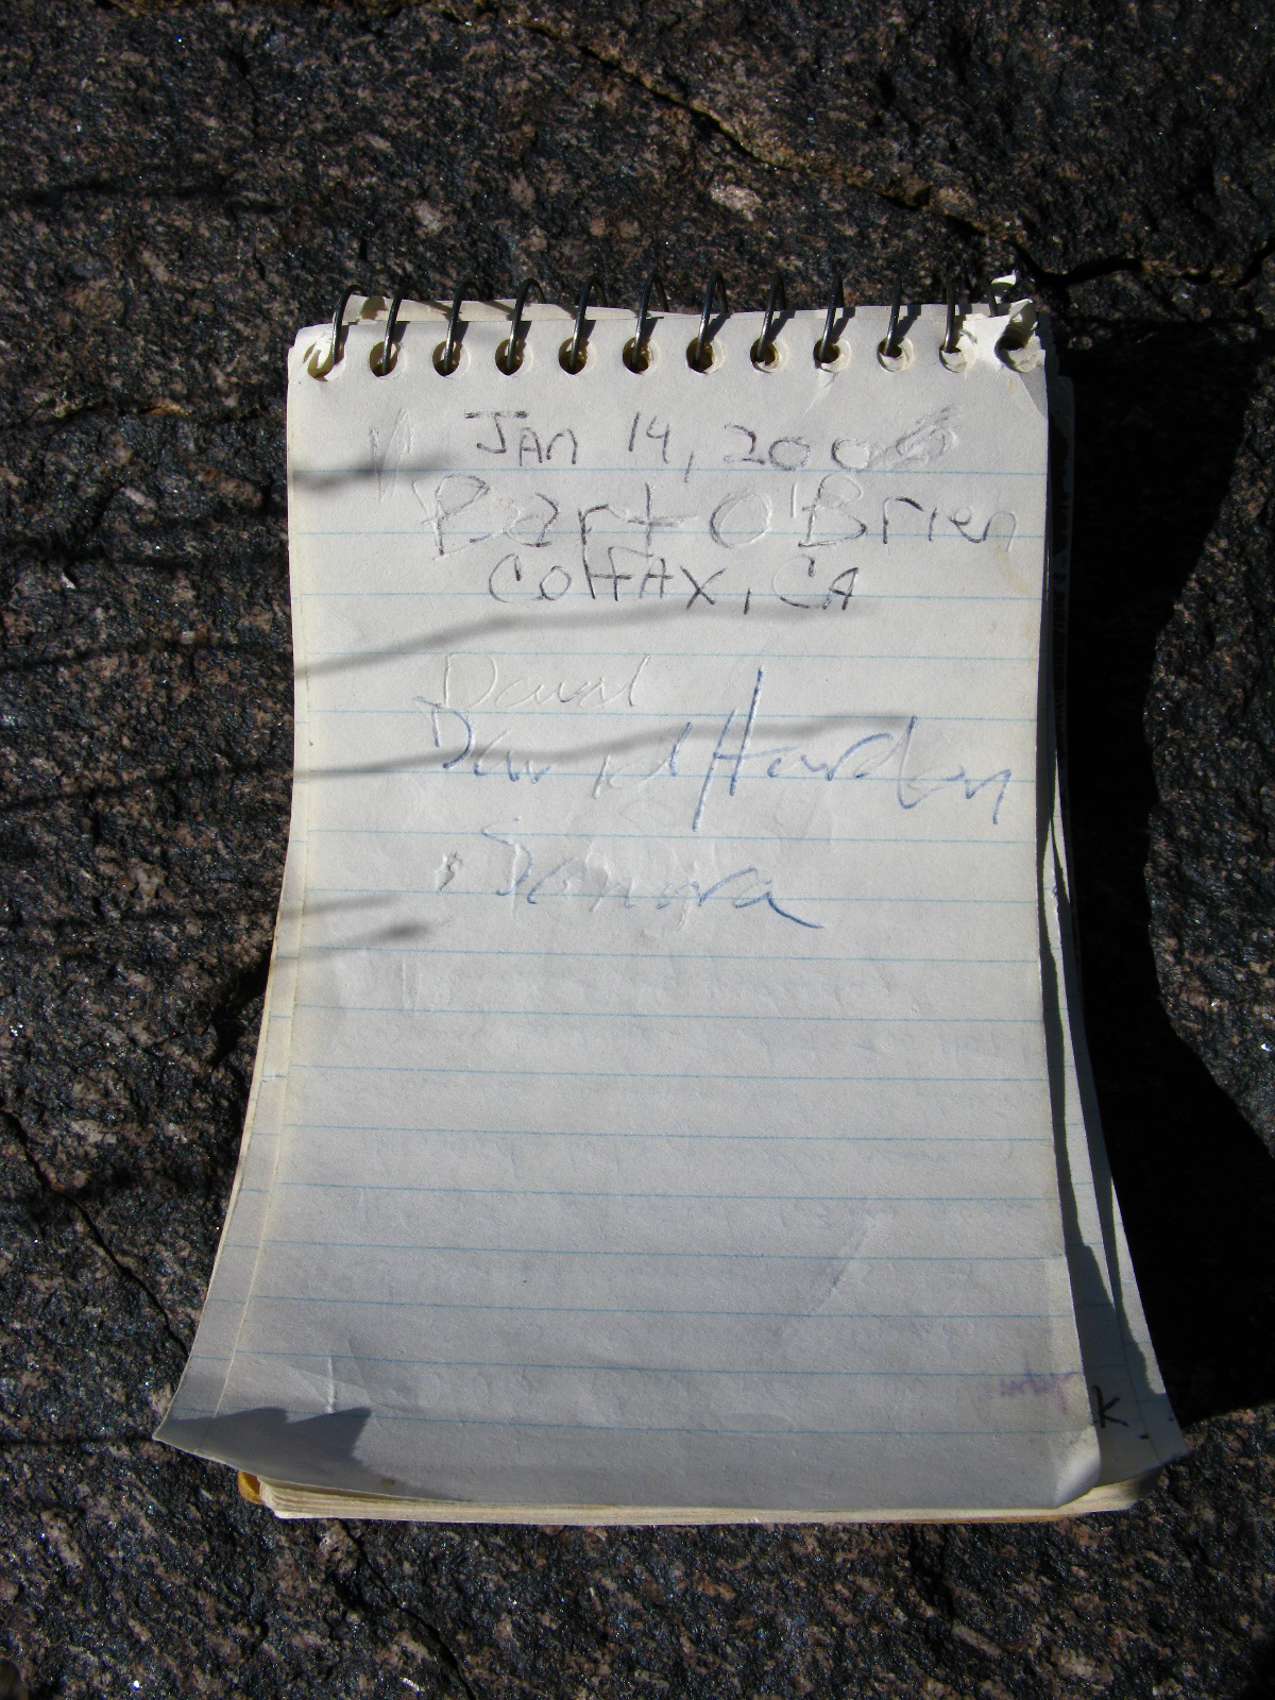 Jan 14, 200
Bart O'Brien
Colfax, CA
David
David
Sonora
K